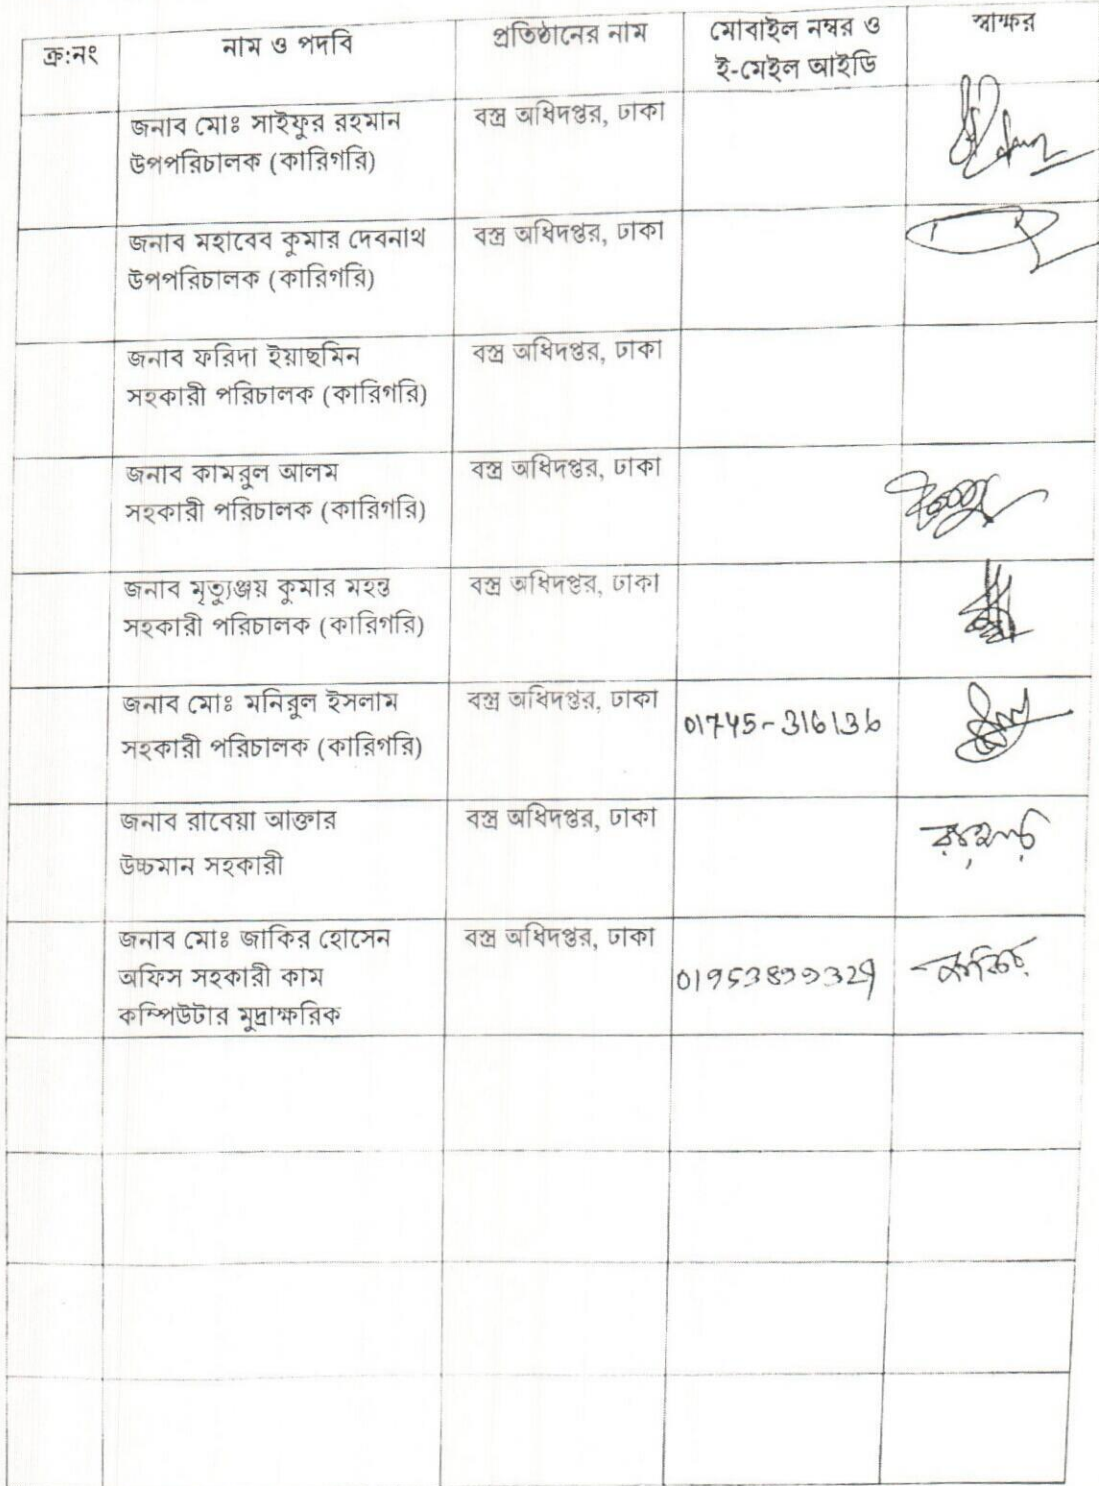 ক্র:নং
নাম ও পদবি
প্রতিষ্ঠানের নাম
মোবাইল নম্বর ও
ই-মেইল আইডি
স্বাক্ষর
জনাব মোঃ সাইফুর রহমান
উপপরিচালক (কারিগরি)
বস্ত্র অধিদপ্তর, ঢাকা
জনাব মহাবেব কুমার দেবনাথ
উপপরিচালক (কারিগরি)
বস্ত্র অধিদপ্তর, ঢাকা
জনাব ফরিদা ইয়াছমিন
সহকারী পরিচালক (কারিগরি)
বস্ত্র অধিদপ্তর, ঢাকা
জনাব কামরুল আলম
সহকারী পরিচালক (কারিগরি)
বস্ত্র অধিদপ্তর, ঢাকা
জনাব মৃত্যুঞ্জয় কুমার মহন্ত
সহকারী পরিচালক (কারিগরি)
বস্ত্র অধিদপ্তর, ঢাকা
জনাব মোঃ মনিরুল ইসলাম
সহকারী পরিচালক (কারিগরি)
বস্ত্র অধিদপ্তর, ঢাকা
01745-316136
জনাব রাবেয়া আক্তার
উচ্চমান সহকারী
বস্ত্র অধিদপ্তর, ঢাকা
জনাব মোঃ জাকির হোসেন
অফিস সহকারী কাম
কম্পিউটার মুদ্রাক্ষরিক
বস্ত্র অধিদপ্তর, ঢাকা